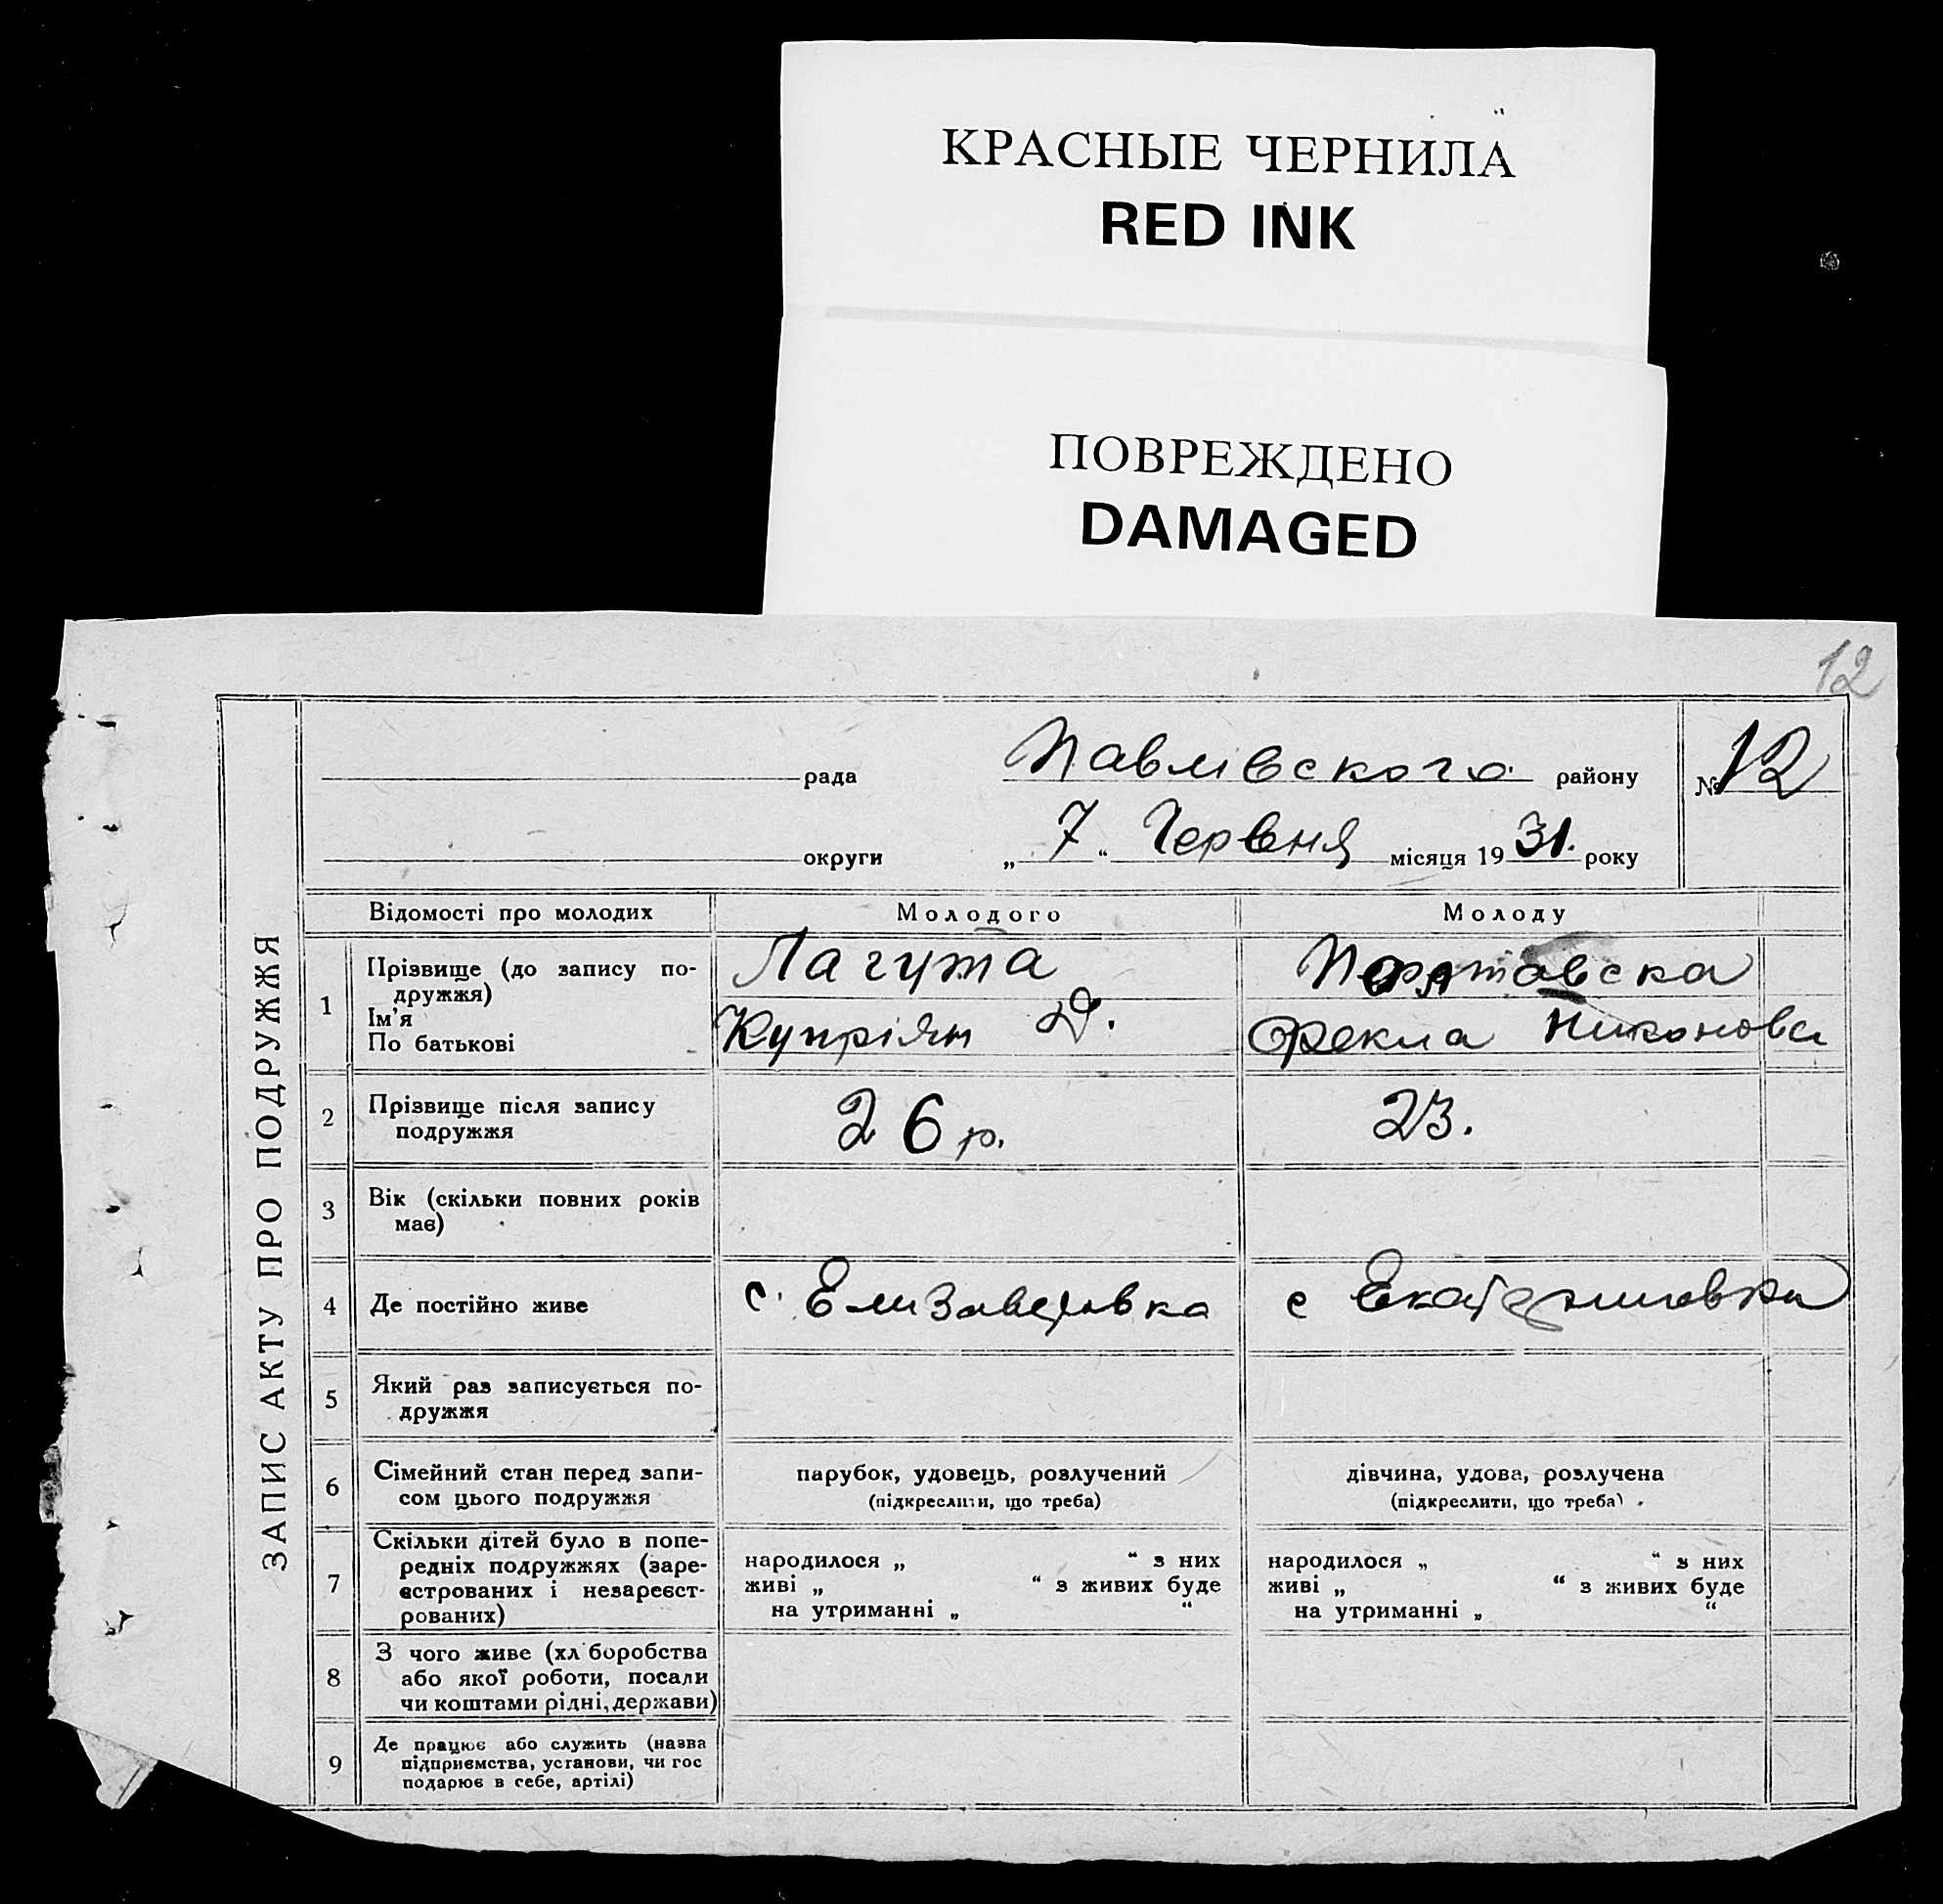 КРАСНЫЕ ЧЕРНИЛА
RED INK
ПОВРЕЖДЕНО
DAMAGED
12
ЗАПИС АКТУ ПРО ПОДРУЖЖЯ
рада Павлівского району №12
округи „7“ Червня місяця 1931. року
Відомості про молодих Молодого Молоду
1 Прізвище (до запису по-
дружжя)
Ім'я
По батькові
Лагута
Купріян Д.
Полтавска
Фекла Никонова
2 Прізвище після запису
подружжя
26 р.
23.
3 Вік (скільки повних років
має)
4 Де постійно живе
с. Елизаветовка
с Екатериновка
5 Який раз записується по-
дружжя
6 Сімейний стан перед запи-
сом цього подружжя
парубок, удовець, розлучений
(підкреслити, що треба)
дівчина, удова, розлучена
(підкреслити, що треба)
7 Скільки дітей було в попе-
редніх подружжях (заре-
єстрованих і незареєст-
рованих)
народилося „ “ з них
живі „ “ з живих буде
на утриманні „ “
народилося „ “ з них
живі „ “ з живих буде
на утриманні „ “
8 З чого живе (хл боробства
або якої роботи, посади
чи коштами рідні, держави)
9 Де працює або служить (назва
підприємства, установи, чи гос
подарює в себе, артілі)